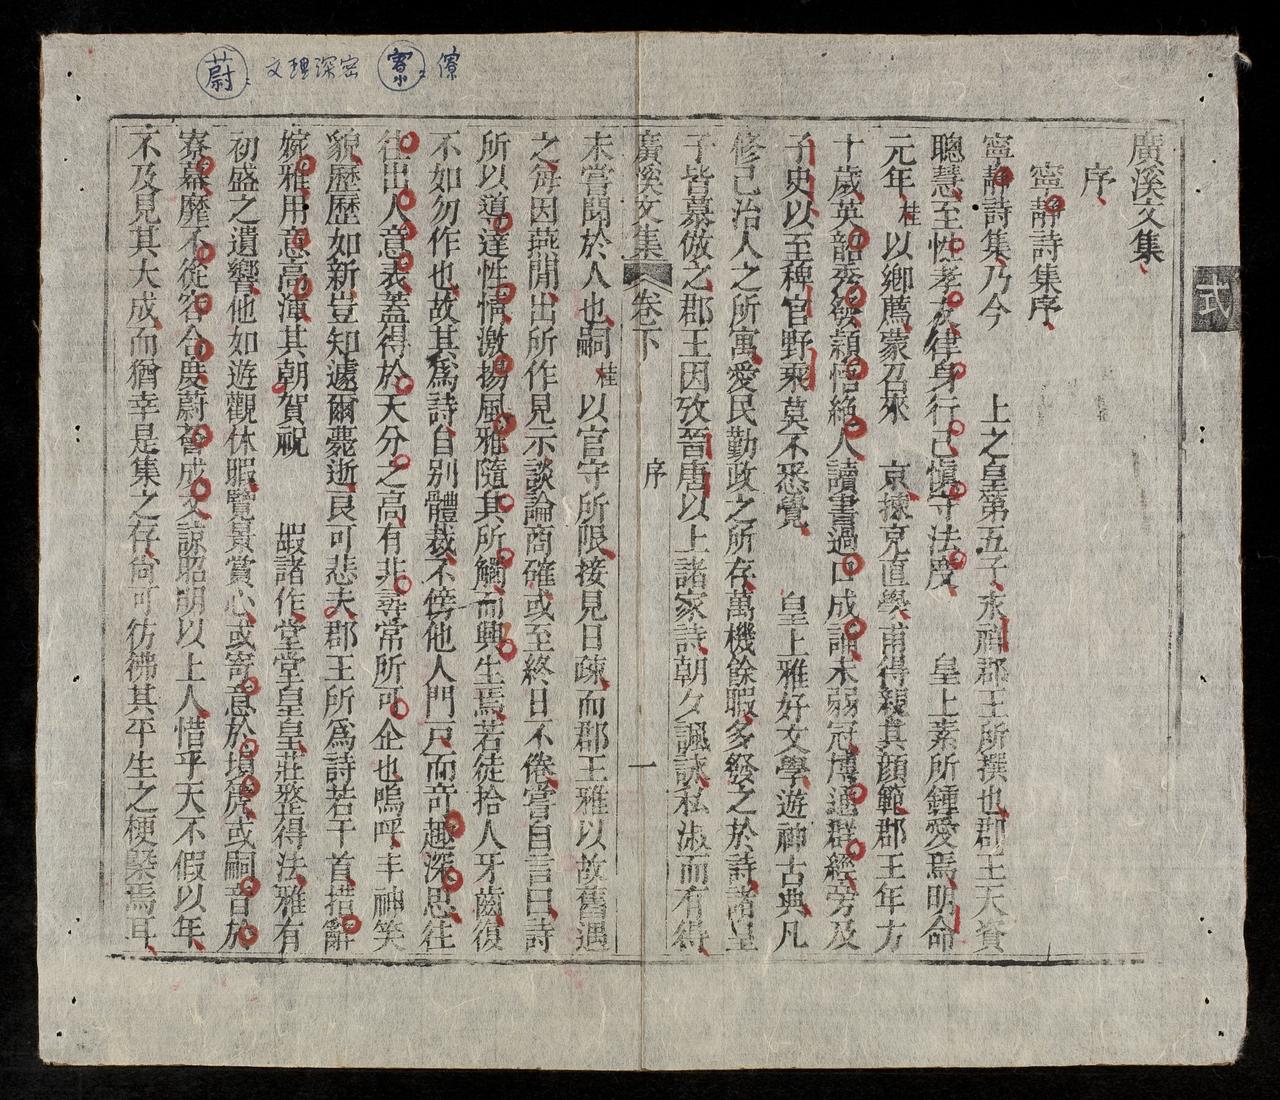 蔚：文理深密　寮：僚
式
廣溪文集
序
寧靜詩集序
寧靜詩集乃今　上之皇第五子永祥郡王所撰也郡王天資
聰慧至性孝友律身行己愼守法度　皇上素所鍾愛焉明命
元年桂以鄉薦蒙召來　京揀充直學甫得親其顔範郡王年方
十歲英韶秀發穎悟絶人讀書過口成誦未弱冠博通群經旁及
子史以至稗官野乘莫不悉覺　皇上雅好文學遊神古典凡
修己治人之所寓愛民勤政之所存萬機餘暇多發之於詩諸皇
子皆慕倣之郡王因攷晉唐以上諸家詩朝夕諷詠私淑而有得
廣溪文集　卷下　序　一
未嘗聞於人也嗣桂以官守所限接見日疎而郡王雅以故舊遇
之每因燕閒出所作見示談論商確或至終日不倦嘗自言曰詩
所以導達性情激揚風雅隨其所觸而興生焉若徒拾人牙齒復
不如勿作也故其爲詩自別體裁不傍他人門戶而竒趣深思往
往出人意表蓋得於天分之高有非尋常所可企也嗚呼丰神笑
貌歷歷如新豈知遽爾薨逝良可悲夫郡王所爲詩若干首措辭
婉雅用意高渾其朝賀祝　嘏諸作堂堂皇皇莊整得法雅有
初盛之遺響他如遊觀休暇覽景賞心或寄意於塤篪或嗣音於
寮幕靡不從容合度蔚薈成文諒昭明以上人惜乎天不假以年
不及見其大成而猶幸是集之存尙可彷彿其平生之梗槩焉耳